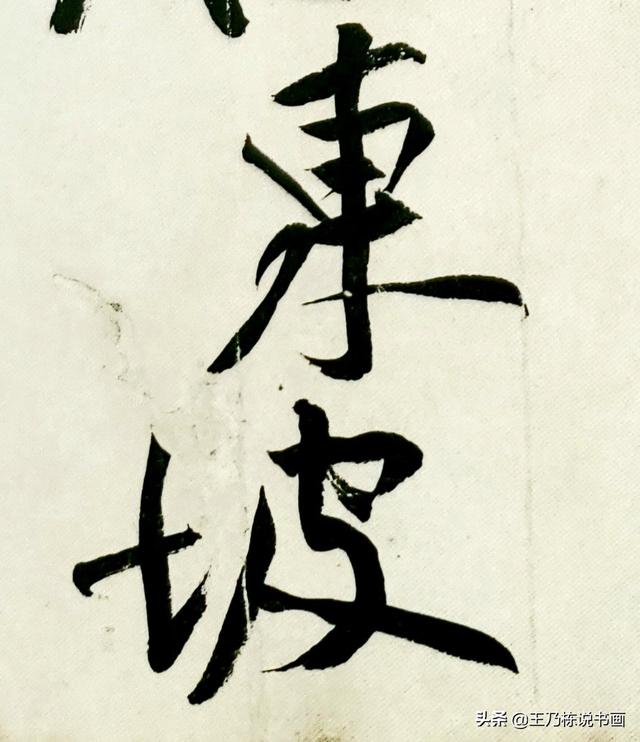 東坡
头条 @王乃栋说书画